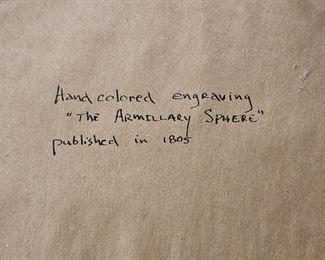 Hand colored engraving
"THE ARMILLARY SPHERE"
published in 1805